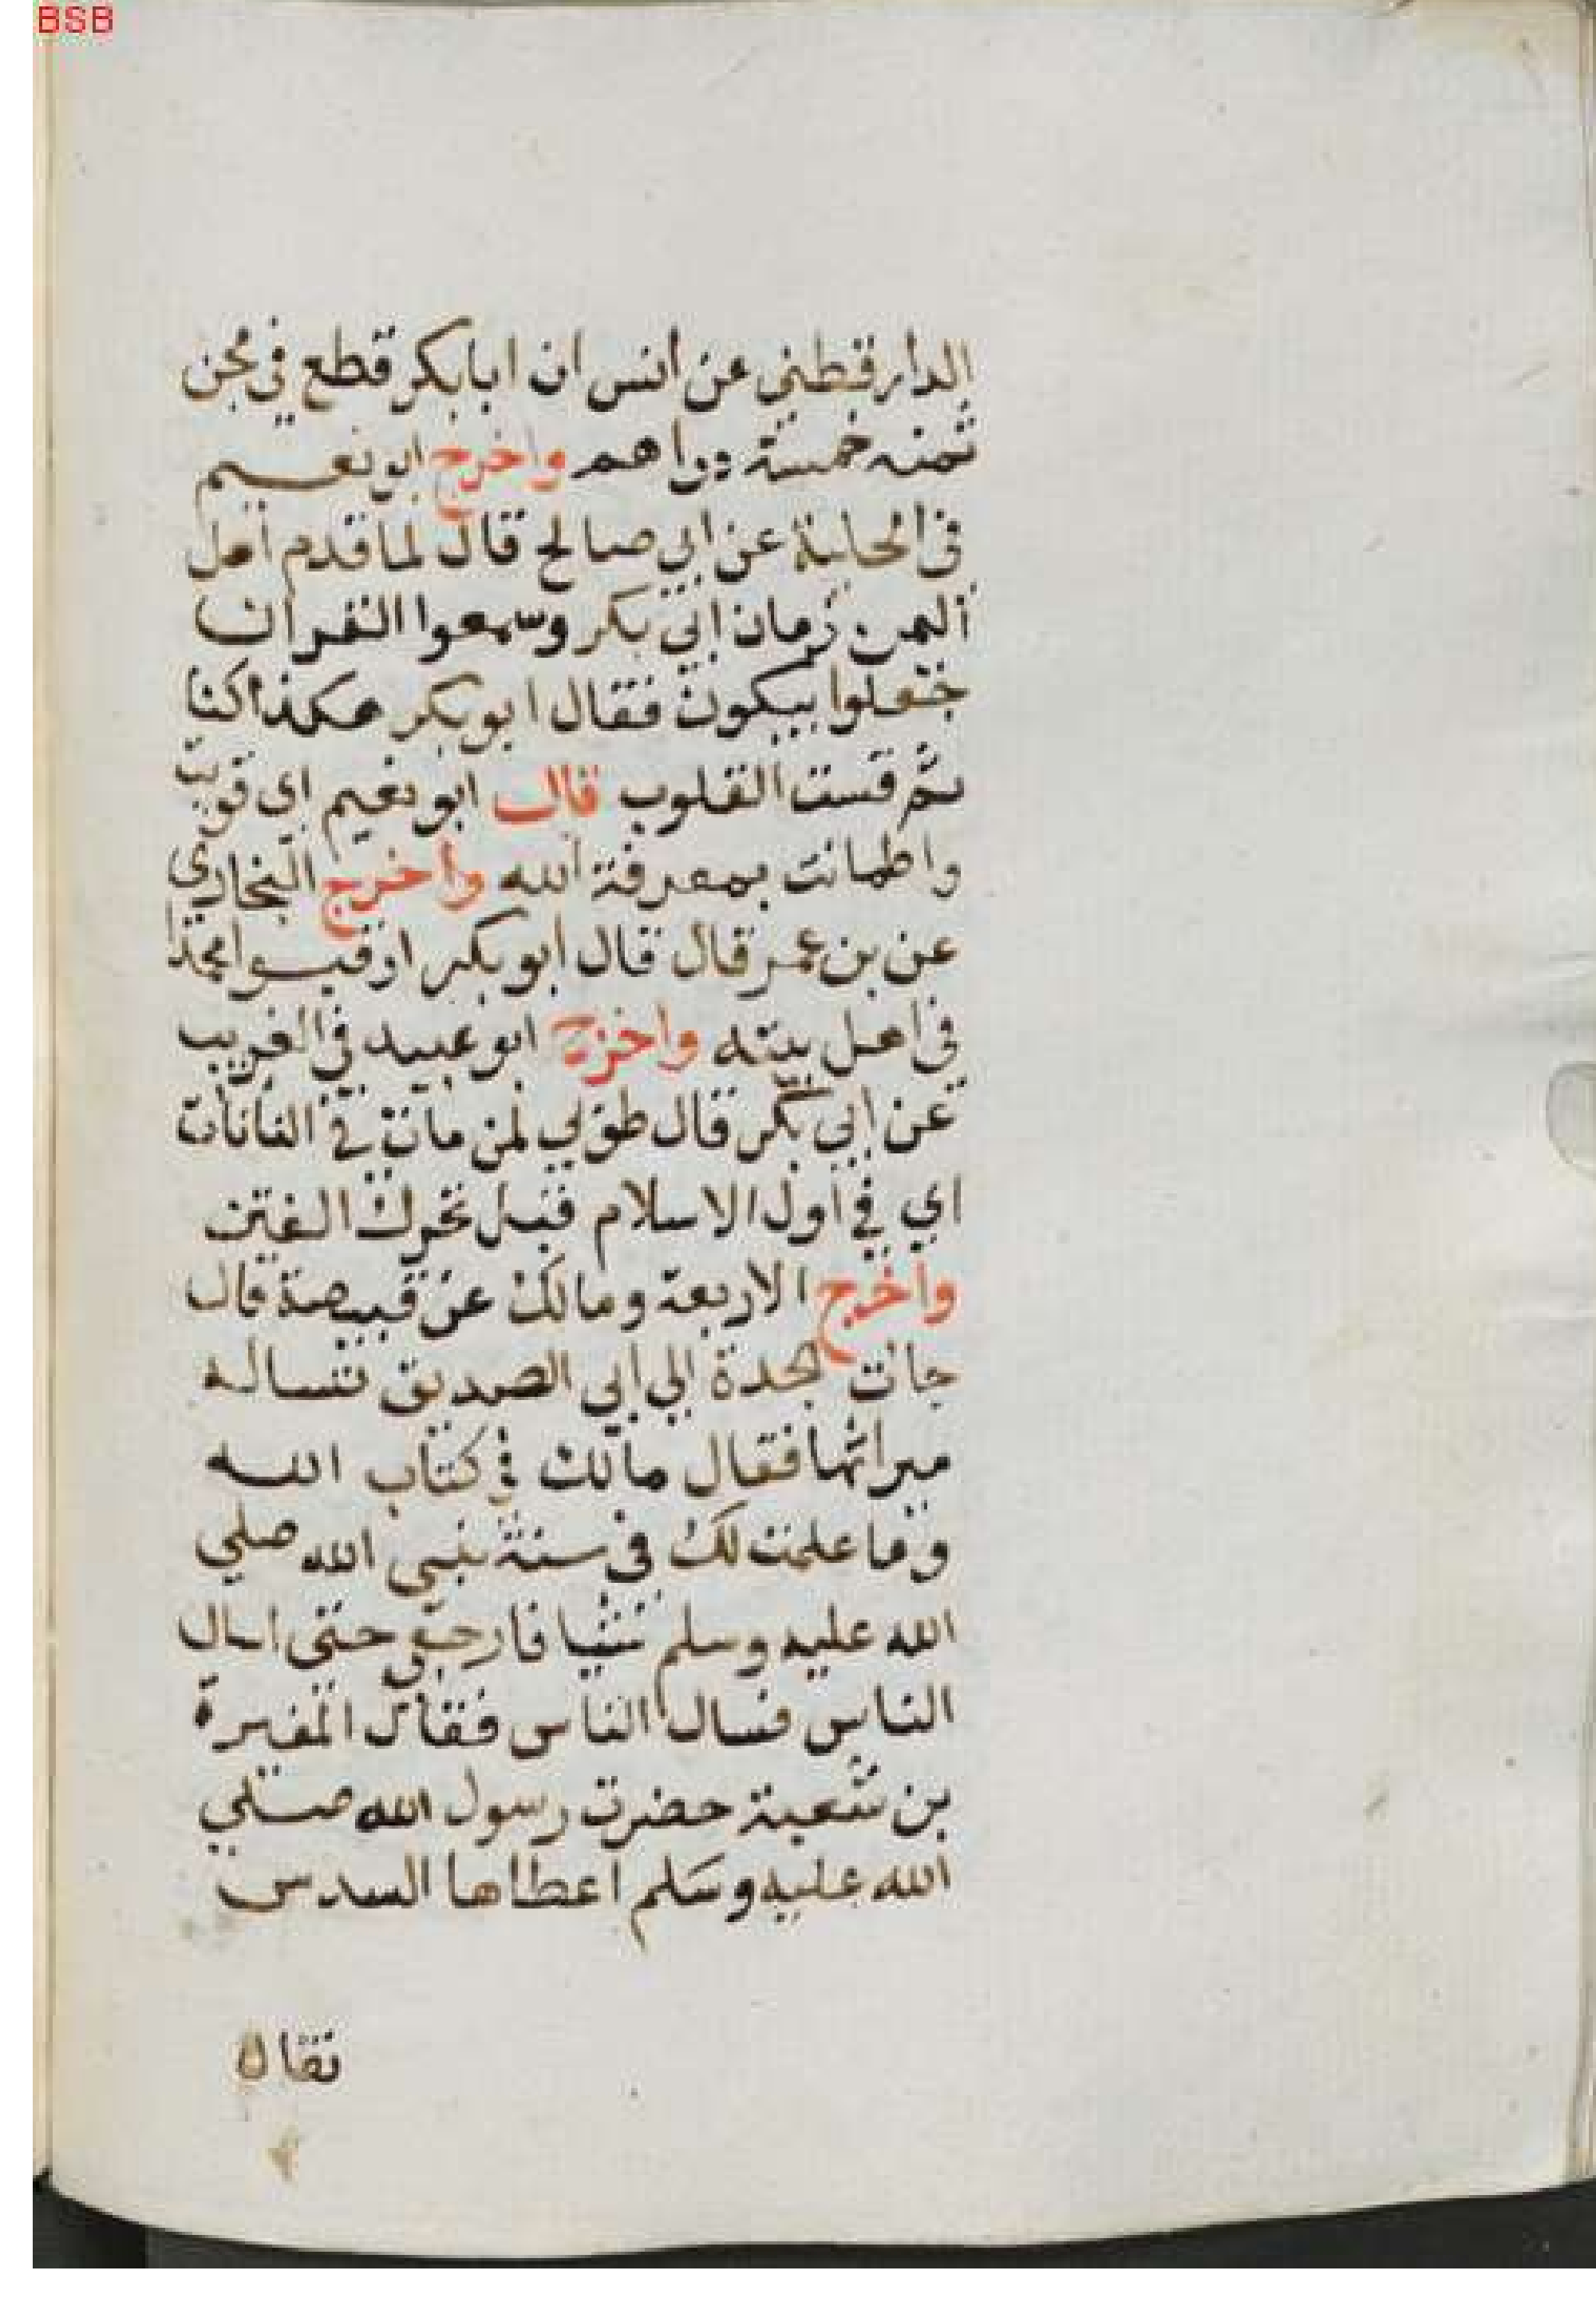 BSB
الدارقطني عن انس ان ابابكر قطع في مجن
ثمنه خمسة دراهم واخرج ابو نعيم
في الحلية عن ابي صالح قال لما قدم اهل
اليمن زمان ابي بكر وسمعوا القران
جعلوا يبكون فقال ابو بكر هكذا كنا
ثم قست القلوب قال ابو نعيم اي قويت
واطمانت بمعرفة الله واخرج البخاري
عن بن عمر قال قال ابو بكر ارقبوا محمدا
في اهل بيته واخرج ابو عبيد في الغريب
عن ابي بكر قال طوبي لمن مات في النانات
اي في اول الاسلام قبل تحرك الفتن
واخرج الاربعة ومالك عن قبيصة قال
جات الجدة الي ابي الصديق تساله
ميراثها فقال مالك في كتاب الله
وما علمت لك في سنة نبي الله صلي
الله عليه وسلم شيئا فارجعي حتي اسال
الناس فسال الناس فقال المغيرة
بن شعبة حضرت رسول الله صلي
الله عليه وسلم اعطاها السدس
فقال